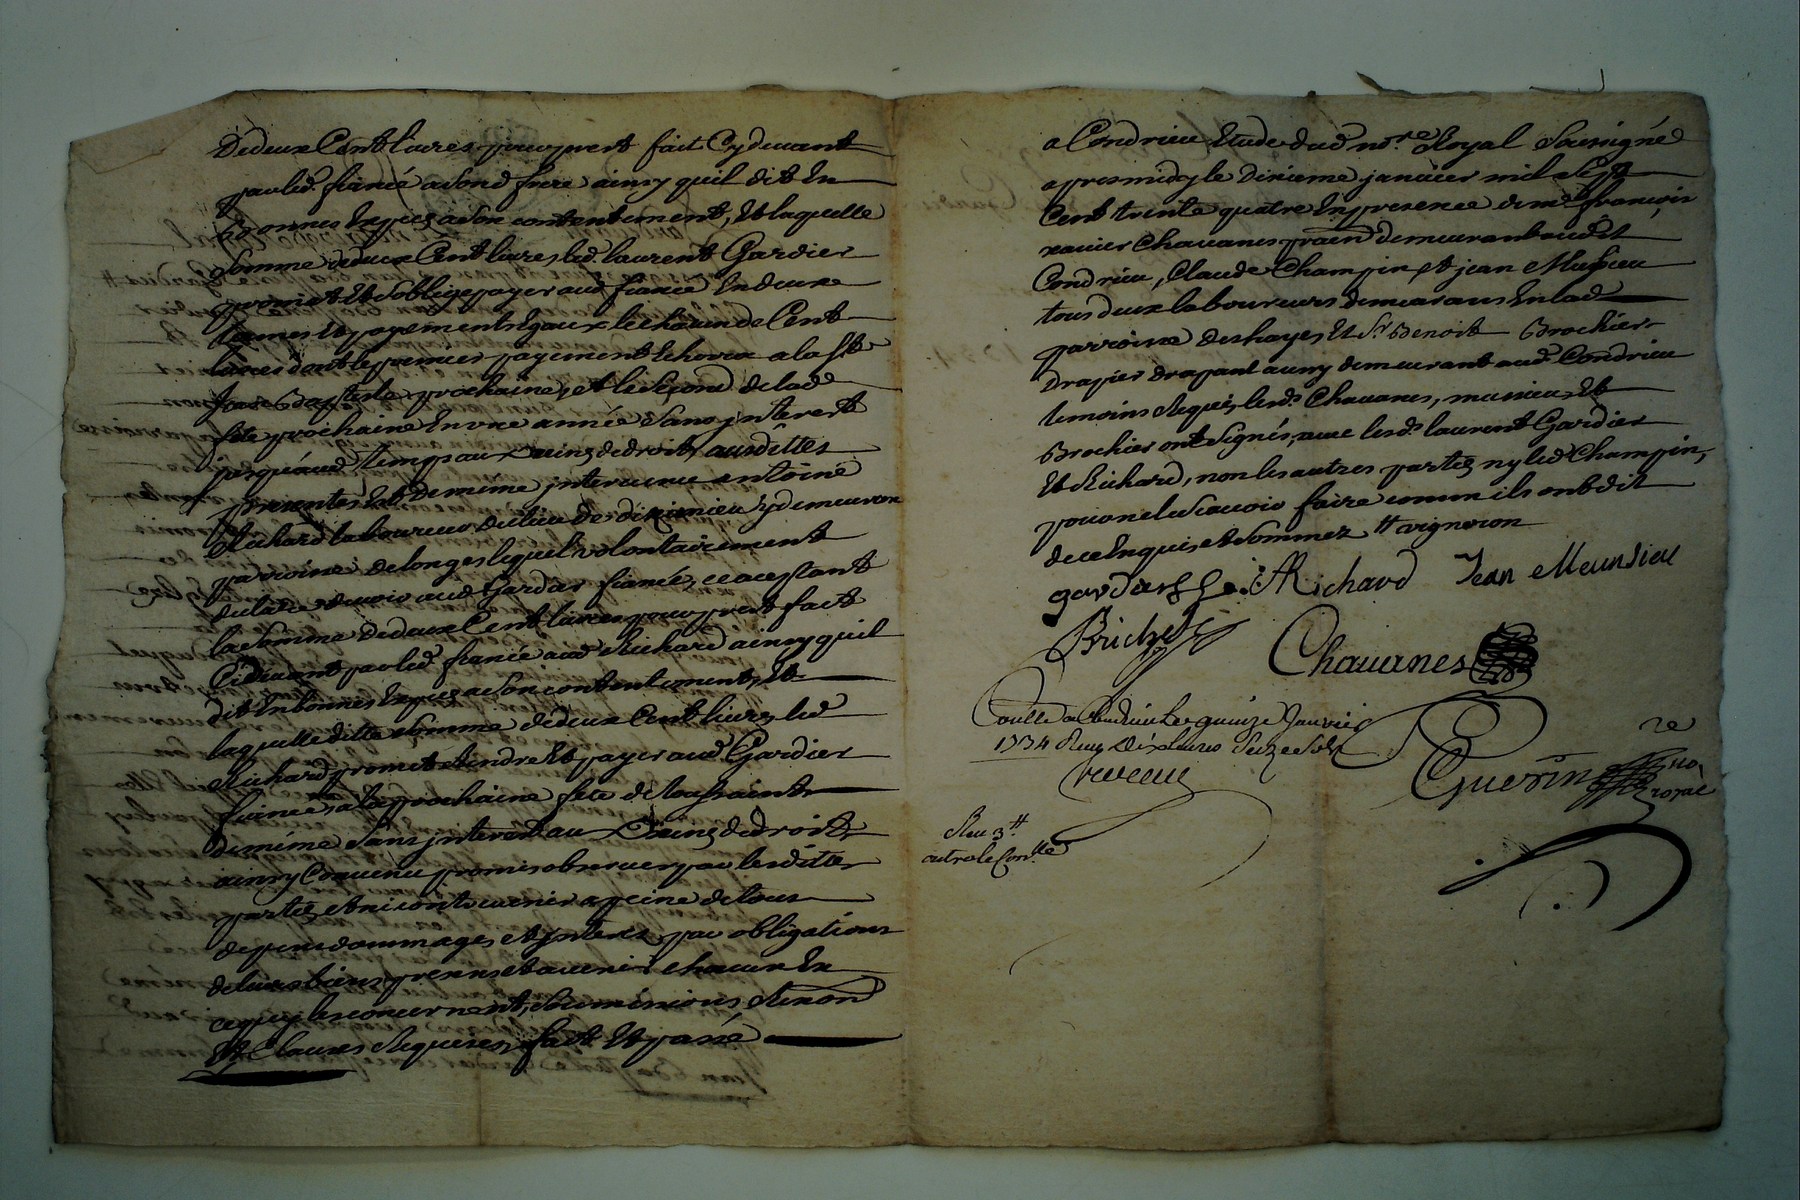 De deux Cent livres pour prest fait Cy devant
par led. fiancé a Son d. frere ainsy quil dit En
Bonnes Especes a Son contentement, Et laquelle
Somme de deux Cent livres led. laurent Gardier
promet Et S'oblige payer aud. fiancé En deux
termes Et payements Egaux le chacun de Cent
livres dont le premier payement Echerra a la feste
Jean Baptiste prochaine, et le Second de lad.
fete prochaine En une année Sans jnterest
jusqu'aud. temps au Deniers de droit, aux dittes
presentes Est de meme jntervenu antoine
Richard laboureur du lieu de dizimieu y demeurant
parroisse de longes lequel volontairement
declare devoir aud. Gardier fiancé, ce acceptant
la Somme de deux Cent livres pour prest fait
Cidevant par led. fiancé aud. Richard ainsy quil
dit En bonnes Especes a Son contentement, Et
laquelle ditte Somme de deux Cent livres led.
Richard promet Rendre Et payer aud. Gardier
fiancé, a la prochaine fete de toussaints
de méme Sans jnterest au Deniers de droit,
ainsy Convenu promis observer par lesdittes
parties, et ni contrevenir a peine de tous
depens dommages et jnterest, par obligations
de leurs biens presens et avenir chacun En
ce qui les concernent, Soumissions Renon
Et Clauses Requises, fait Et passé
a Condrieu Etude dud. no.re Royal Soussigné
apres midy le Dixieme janvier mil Sept
Cent trente quatre En presence de m.e francois
xavier Chavanes praen demeurant aud.it
Condrieu, Claude Champin et jean Mussieu
tous deux laboureurs demeurans En lad.
parroisse des hayes, Et S.r Benoit Brochier
Drapier drapant aussy demeurant aud. Condrieu
temoins Requis, lesd.s Chavanes, mussieu, Et
Brochier ont Signés, avec lesd.s laurent Gardier
Et Richard, non les autres parties ny led. Champin,
pour ne le Scavoir faire comme ils ont dit
de ce Enquis et Sommez # vigneron
gardier A Richard Jean Meunsieu
Chavanes
Controllé a Condrieu le quinze Janvier
1734 Reçu dix livres Seize Sols
Guerin no.re
royal
Reçu 3 #
outre le Con.lle